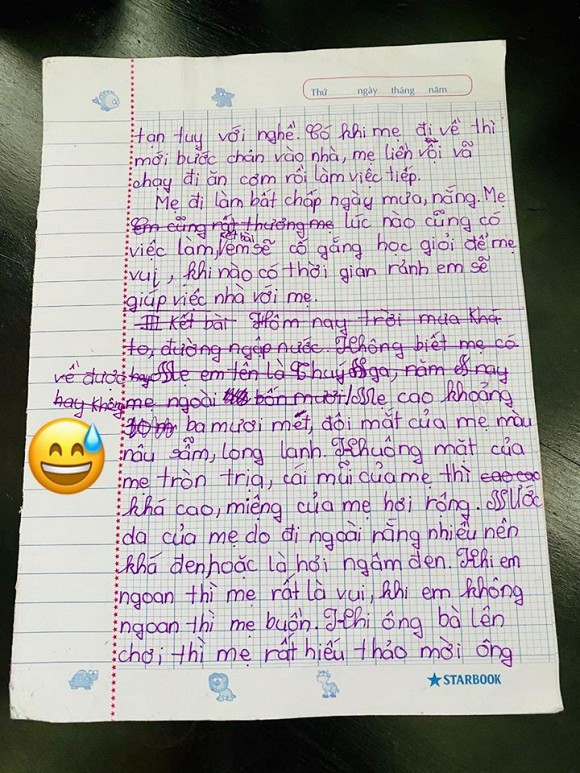 Thứ ngày tháng năm
tan tuy với nghề. Có khi mẹ đi về thì
mới bước chân vào nhà, mẹ liền vỗi vã
chạy đi ăn cơm rồi làm việc tiếp.
Mẹ đi làm bất chấp ngày mưa, nắng. Mẹ
Em cũng rất thương mẹ lúc nào cũng có
việc làm, kết bài em sẽ cố gắng học giỏi để mẹ
vui, khi nào có thời gian rảnh em sẽ
giúp việc nhà với mẹ.
III Kết bài Hôm nay trời mưa khá
to, đường ngập nước. Không biết mẹ có
về được hay Mẹ em tên là Thuý Nga, năm nay
hay không mẹ ngoài bốn mươi Mẹ cao khoảng
ba mươi mét, đôi mắt của mẹ màu
nâu sẫm, long lanh. Khuông mặt của
mẹ tròn trịa, cái mũi của mẹ thì cao cao
khá cao, miệng của mẹ hơi rộng. Nước
da của mẹ do đi ngoài nắng nhiều nên
khá đen, hoặc là hơi ngâm đen. Khi em
ngoan thì mẹ rất là vui, khi em không
ngoan thì mẹ buồn. Khi ông bà lên
chơi thì mẹ rất hiếu thảo mời ông
STARBOOK